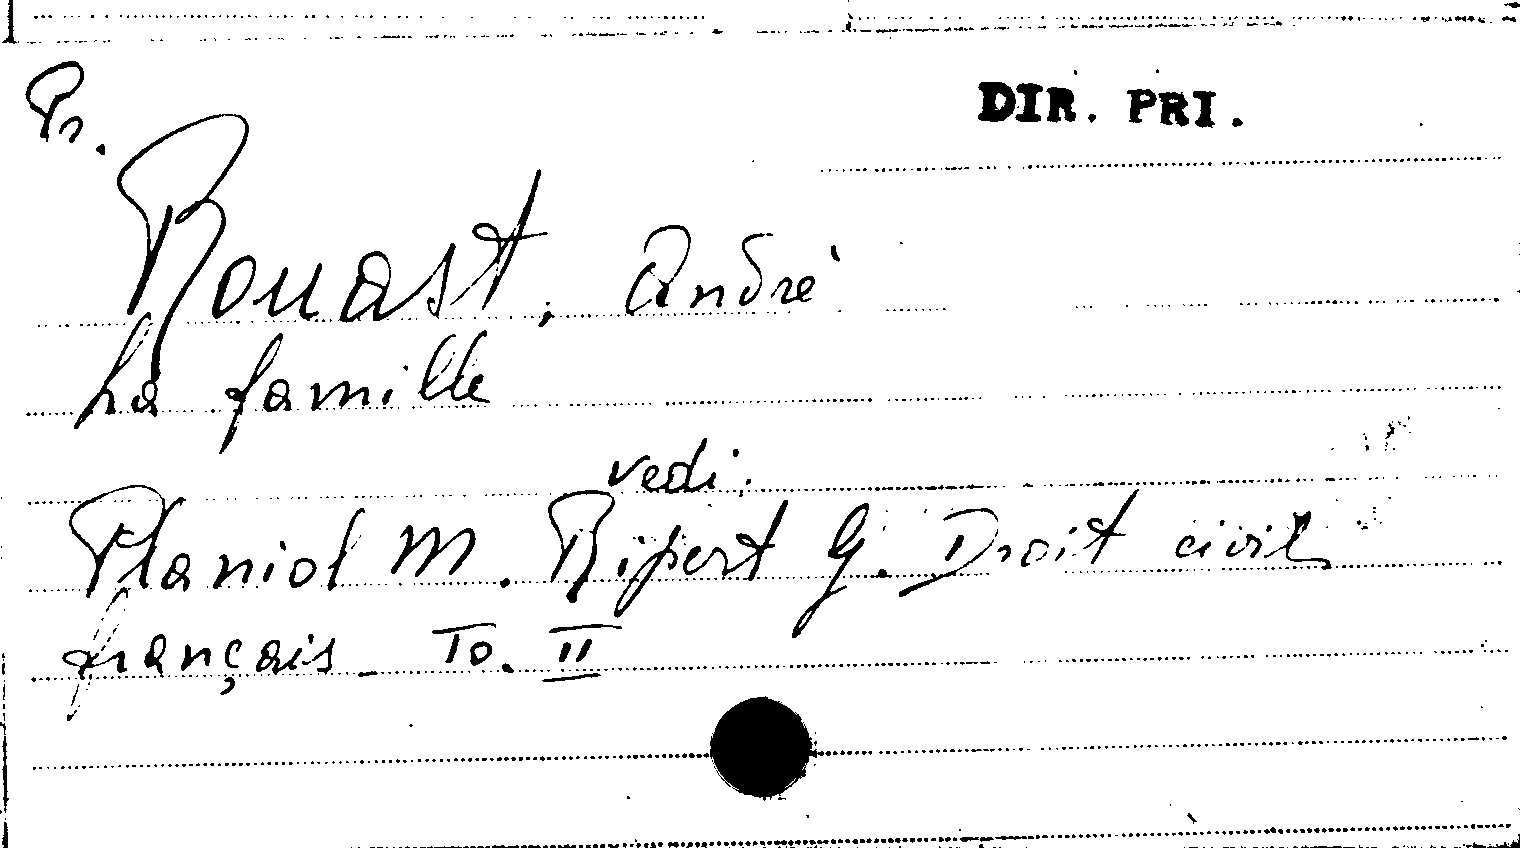 Pr.
DIR. PRI.
Rouast, André
La famille
vedi:
Planiol M. Ripert G. Droit civil
français To. II